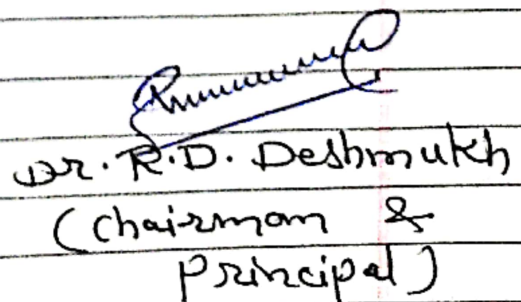 Dr. R.D. Deshmukh
(Chairman &
Principal)